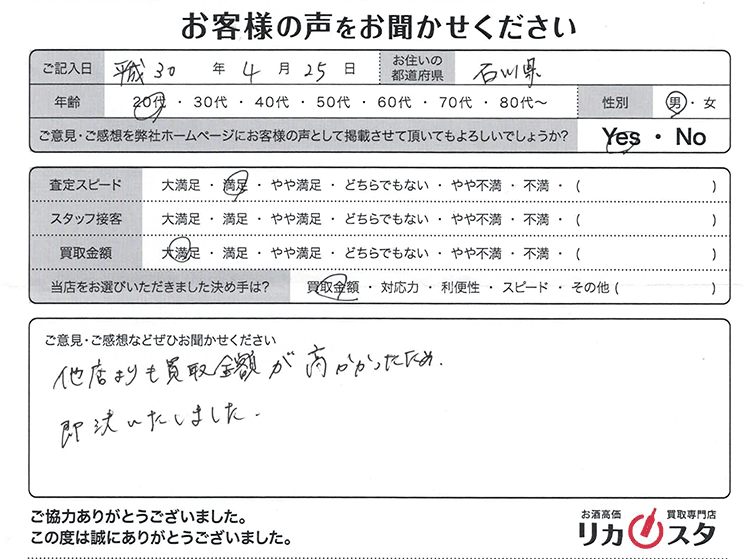 お客様の声をお聞かせください
ご記入日 平成30 年 4 月 25 日 お住いの都道府県 石川県
年齢 20代・30代・40代・50代・60代・70代・80代〜 性別 男・女
ご意見・ご感想を弊社ホームページにお客様の声として掲載させて頂いてもよろしいでしょうか? Yes・No
査定スピード 大満足・満足・やや満足・どちらでもない・やや不満・不満・( )
スタッフ接客 大満足・満足・やや満足・どちらでもない・やや不満・不満・( )
買取金額 大満足・満足・やや満足・どちらでもない・やや不満・不満・( )
当店をお選びいただきました決め手は? 買取金額・対応力・利便性・スピード・その他( )
ご意見・ご感想などぜひお聞かせください
他店よりも買取金額が高かったため.
即決いたしました.
ご協力ありがとうございました。
この度は誠にありがとうございました。
お酒高価 買取専門店
リカスタ